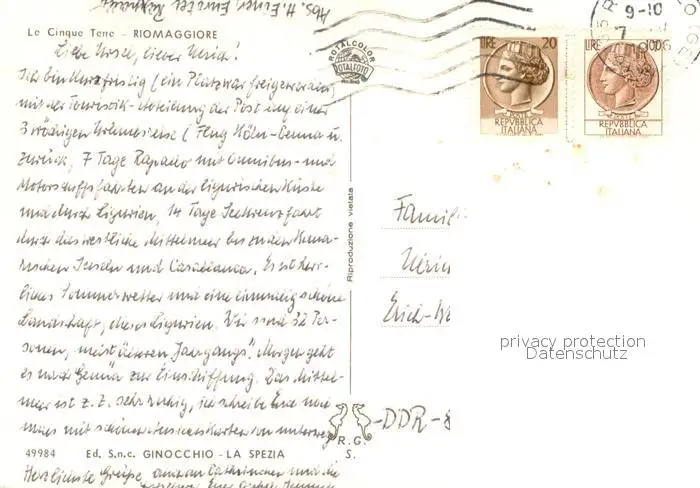 Abs. H. Einer, Eurotel Rapallo
Le Cinque Terre - RIOMAGGIORE
Liebe Ursel, lieber Ulrich!
Ich bin kurzfristig (ein Platz war freigeworden)
mit der Touristik-Abteilung der Post auf einer
3 wöchigen Urlaubsreise (Flug Köln-Genua u.
zurück, 7 Tage Rapallo mit Omnibus- und
Motorschiffsfahrten an der ligurischen Küste
und durch Ligurien, 14 Tage Seekreuzfahrt
durch das westliche Mittelmeer bis zu den Kana-
rischen Inseln und Casablanca. Es ist herr-
liches Sommerwetter und eine einmalig schöne
Landschaft, dieses Ligurien. Wir sind 32 Per-
sonen, meist älteren Jahrgangs". Morgen geht
es nach Genua zur Einschiffung. Das Mittel-
meer ist z. Z. sehr ruhig, ich schreibe Euch noch
mals mit schönen Ansichtskarten von unterwegs
49984 Ed. S.n.c. GINOCCHIO - LA SPEZIA
Herzlichste Grüße, und die
ROTALCOLOR
ROTALFOTO
Riproduzione vietata
R.G.
S.
9-10
LIRE 20
POSTE
REPVBBLICA
ITALIANA
LIRE 100
POSTE
REPVBBLICA
ITALIANA
Famili
Ulric
Erich-We
-DDR-8
privacy protection
Datenschutz